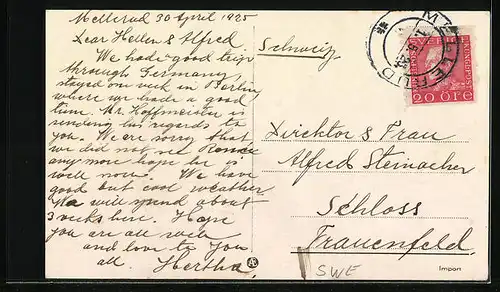 Mellerud 30 April 1925
Dear Hellen & Alfred
We had a good trip
through Germany
stayed one week in Berlin
where we had a good
time. Mr. Hoffmeister is
sending his regards to
you. We are sorry that
we did not see
any more hope he is
well now. We have
good but cool weather
We will spend about
3 weeks here. Hope
you are all well
and love to you
all. Hertha
Schweiz
MELLERUD
20 ÖRE
Direktor & Frau
Alfred Steinacher
Schloss
Frauenfeld.
SWE
Import